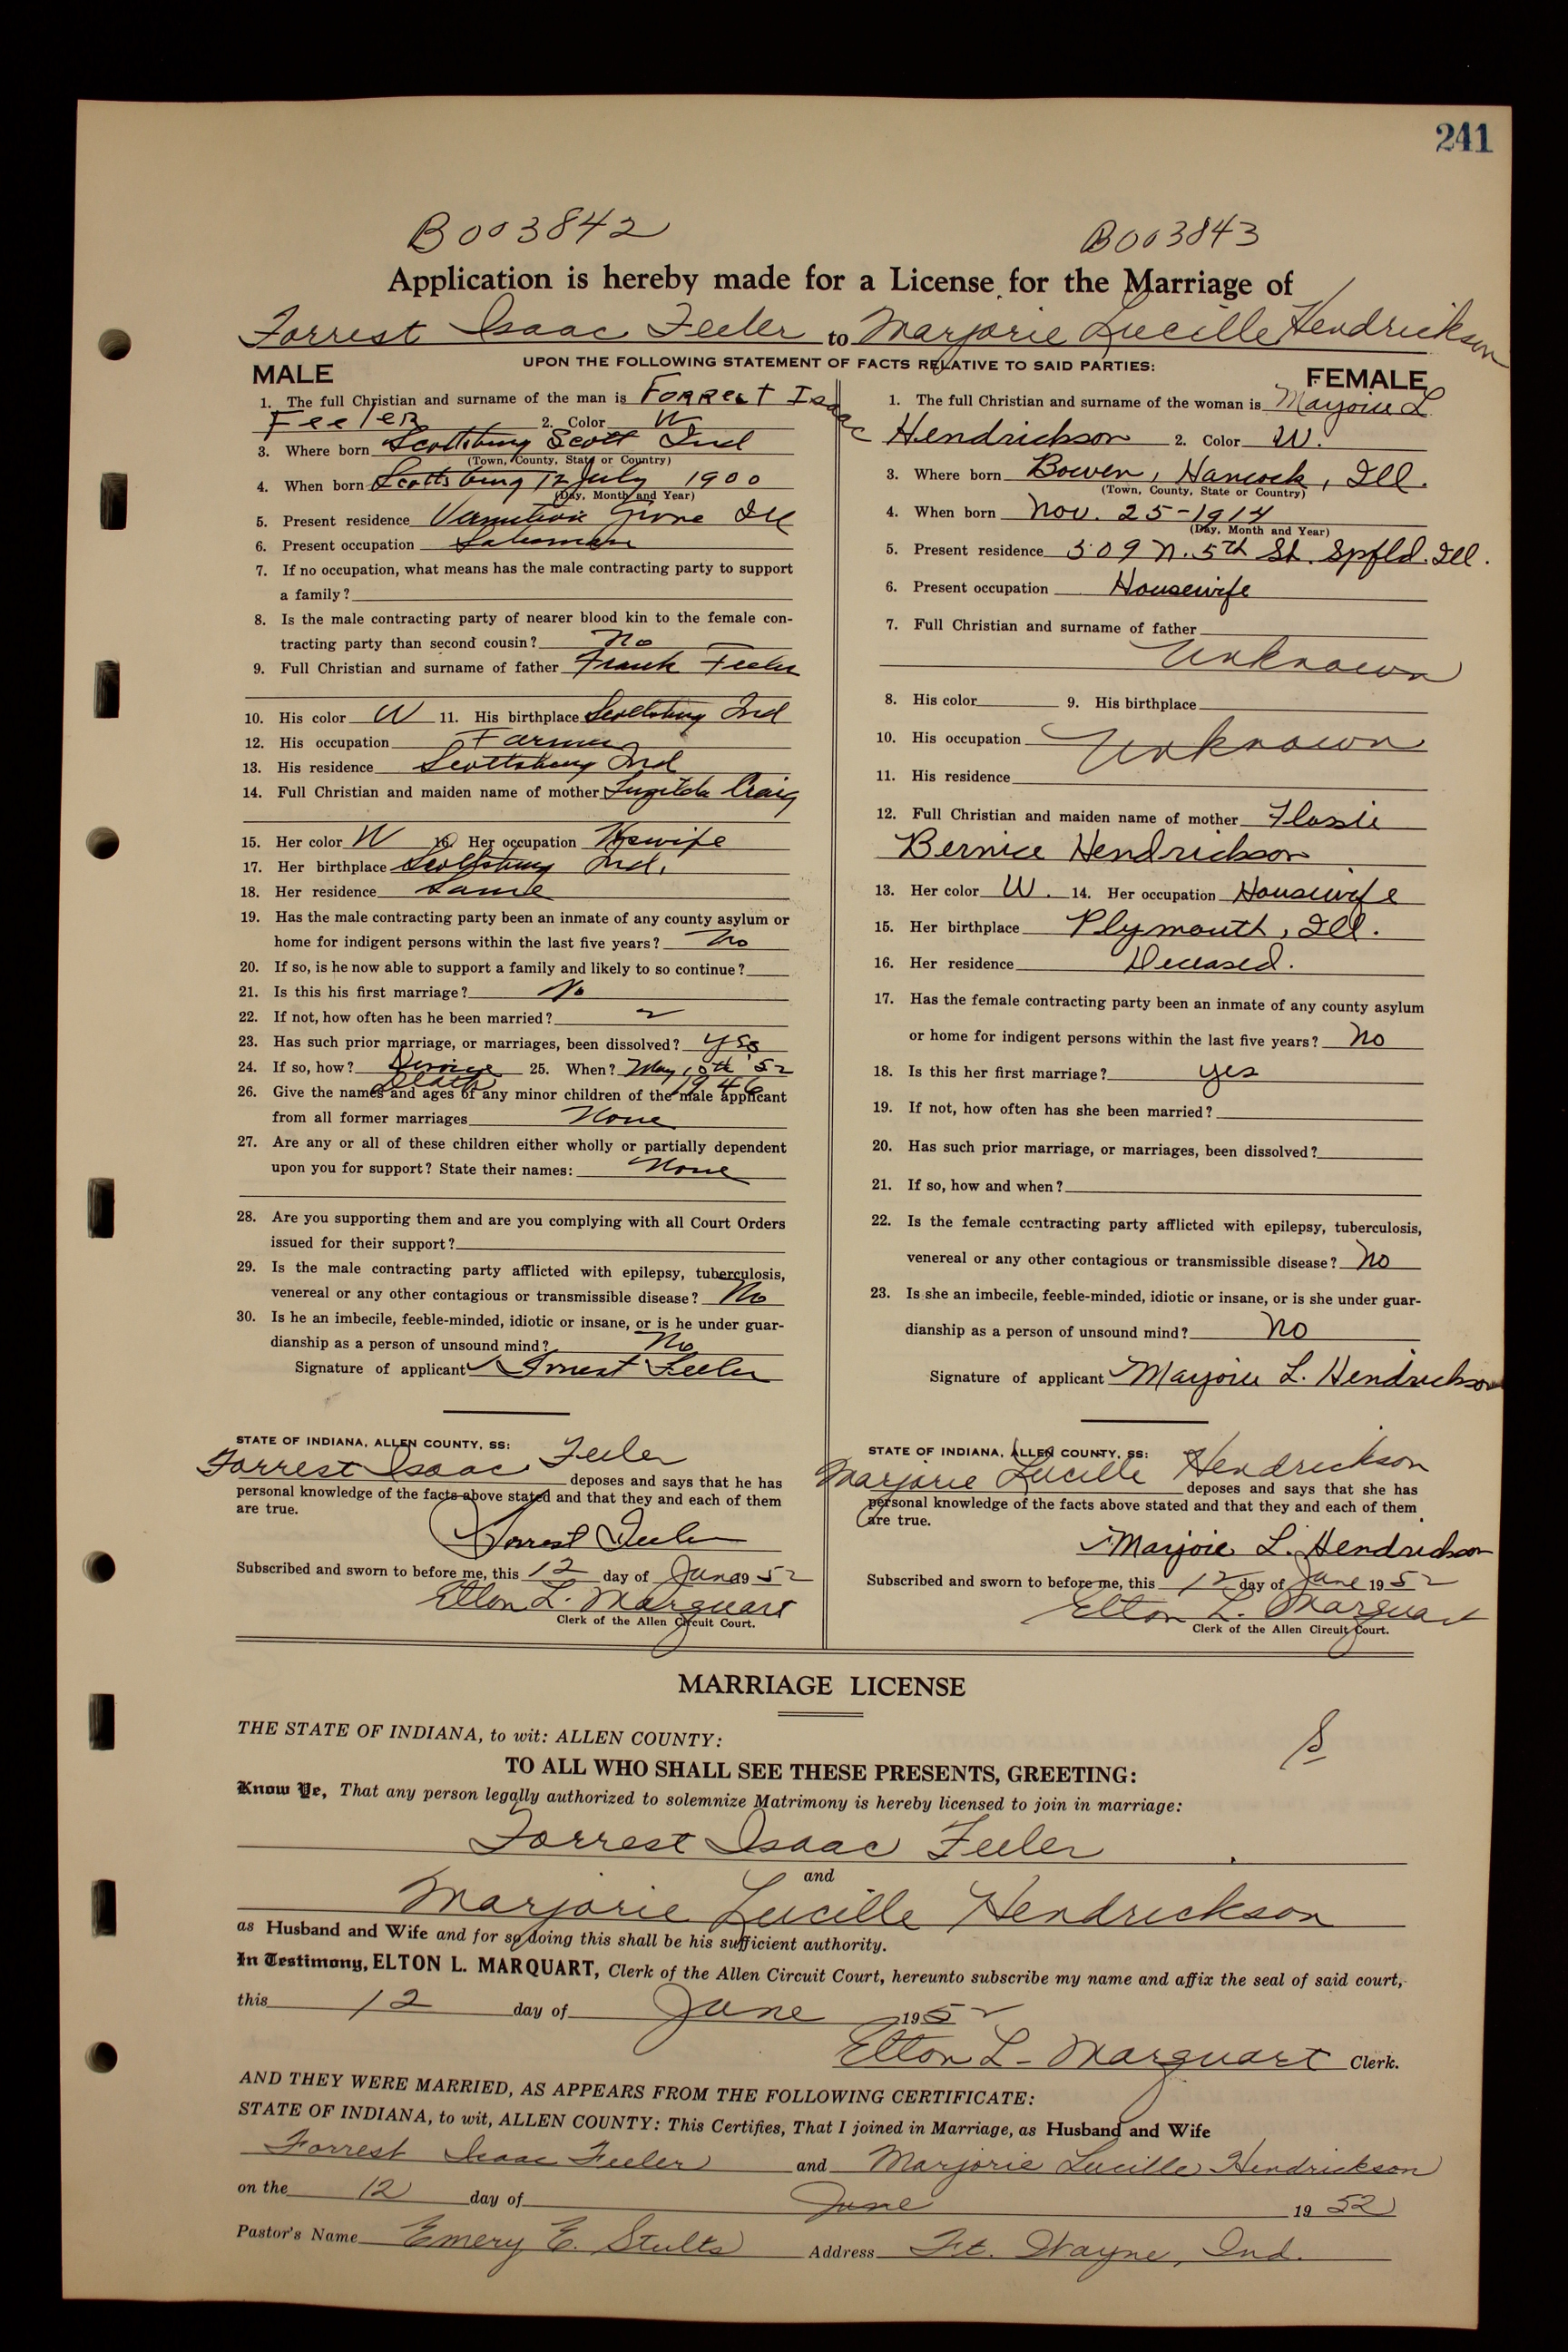 241
B003842
B003843
Application is hereby made for a License for the Marriage of
Forrest Isaac Feeler to Marjorie Lucille Hendrickson
UPON THE FOLLOWING STATEMENT OF FACTS RELATIVE TO SAID PARTIES:
MALE
1. The full Christian and surname of the man is Forrest Isaac
Feeler 2. Color W
3. Where born Scottsburg Scott Ind
(Town, County, State or Country)
4. When born Scottsburg 12 July 1900
(Day, Month and Year)
5. Present residence Grove Ill
6. Present occupation Salesman
7. If no occupation, what means has the male contracting party to support
a family?
8. Is the male contracting party of nearer blood kin to the female con-
tracting party than second cousin? No
9. Full Christian and surname of father Frank Feeler
10. His color W 11. His birthplace Scottsburg Ind
12. His occupation Farmer
13. His residence Scottsburg Ind
14. Full Christian and maiden name of mother Craig
15. Her color W 16. Her occupation Hswife
17. Her birthplace Scottsburg Ind.
18. Her residence Same
19. Has the male contracting party been an inmate of any county asylum or
home for indigent persons within the last five years? No
20. If so, is he now able to support a family and likely to so continue?
21. Is this his first marriage? No
22. If not, how often has he been married? 2
23. Has such prior marriage, or marriages, been dissolved? Yes
24. If so, how? Divorce 25. When? May '52
Death 1946
26. Give the names and ages of any minor children of the male applicant
from all former marriages None
27. Are any or all of these children either wholly or partially dependent
upon you for support? State their names: None
28. Are you supporting them and are you complying with all Court Orders
issued for their support?
29. Is the male contracting party afflicted with epilepsy, tuberculosis,
venereal or any other contagious or transmissible disease? No
30. Is he an imbecile, feeble-minded, idiotic or insane, or is he under guar-
dianship as a person of unsound mind? No
Signature of applicant Forrest Feeler
STATE OF INDIANA, ALLEN COUNTY, SS:
Forrest Isaac Feeler deposes and says that he has
personal knowledge of the facts above stated and that they and each of them
are true.
Forrest Feeler
Subscribed and sworn to before me, this 12 day of June 1952
Elton L. Marquart
Clerk of the Allen Circuit Court.
FEMALE
1. The full Christian and surname of the woman is Marjorie L.
Hendrickson 2. Color W.
3. Where born Bowen, Hancock, Ill.
(Town, County, State or Country)
4. When born Nov. 25-1914
(Day, Month and Year)
5. Present residence 509 N. 5th St. Spfld. Ill.
6. Present occupation Housewife
7. Full Christian and surname of father
Unknown
8. His color 9. His birthplace
10. His occupation Unknown
11. His residence
12. Full Christian and maiden name of mother Flossie
Bernice Hendrickson
13. Her color W. 14. Her occupation Housewife
15. Her birthplace Plymouth, Ill.
16. Her residence Deceased.
17. Has the female contracting party been an inmate of any county asylum
or home for indigent persons within the last five years? No
18. Is this her first marriage? yes
19. If not, how often has she been married?
20. Has such prior marriage, or marriages, been dissolved?
21. If so, how and when?
22. Is the female contracting party afflicted with epilepsy, tuberculosis,
venereal or any other contagious or transmissible disease? No
23. Is she an imbecile, feeble-minded, idiotic or insane, or is she under guar-
dianship as a person of unsound mind? No
Signature of applicant Marjorie L. Hendrickson
STATE OF INDIANA, ALLEN COUNTY, SS:
Marjorie Lucille Hendrickson deposes and says that she has
personal knowledge of the facts above stated and that they and each of them
are true.
Marjorie L. Hendrickson
Subscribed and sworn to before me, this 12 day of June 1952
Elton L. Marquart
Clerk of the Allen Circuit Court.
MARRIAGE LICENSE
THE STATE OF INDIANA, to wit: ALLEN COUNTY:
TO ALL WHO SHALL SEE THESE PRESENTS, GREETING:
Know Ye, That any person legally authorized to solemnize Matrimony is hereby licensed to join in marriage:
Forrest Isaac Feeler
and
Marjorie Lucille Hendrickson
as Husband and Wife and for so doing this shall be his sufficient authority.
In Testimony, ELTON L. MARQUART, Clerk of the Allen Circuit Court, hereunto subscribe my name and affix the seal of said court,
this 12 day of June 1952
Elton L. Marquart Clerk.
AND THEY WERE MARRIED, AS APPEARS FROM THE FOLLOWING CERTIFICATE:
STATE OF INDIANA, to wit, ALLEN COUNTY: This Certifies, That I joined in Marriage, as Husband and Wife
Forrest Isaac Feeler and Marjorie Lucille Hendrickson
on the 12 day of June 1952
Pastor's Name Emery E. Stults Address Ft. Wayne, Ind.